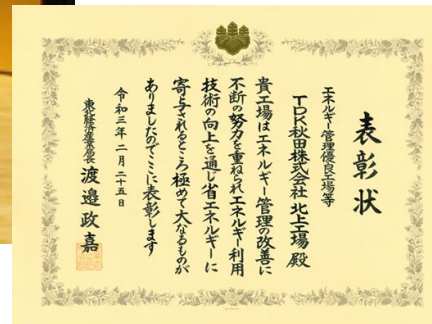 表彰状
エネルギー管理優良工場等
TDK秋田株式会社 北上工場 殿
貴工場はエネルギー管理の改善に
不断の努力を重ねられエネルギー利用
技術の向上を通じ省エネルギーに
寄与されるところ極めて大なるものが
ありましたのでここに表彰します
令和三年二月二十五日
東北経済産業局長 渡邉政嘉